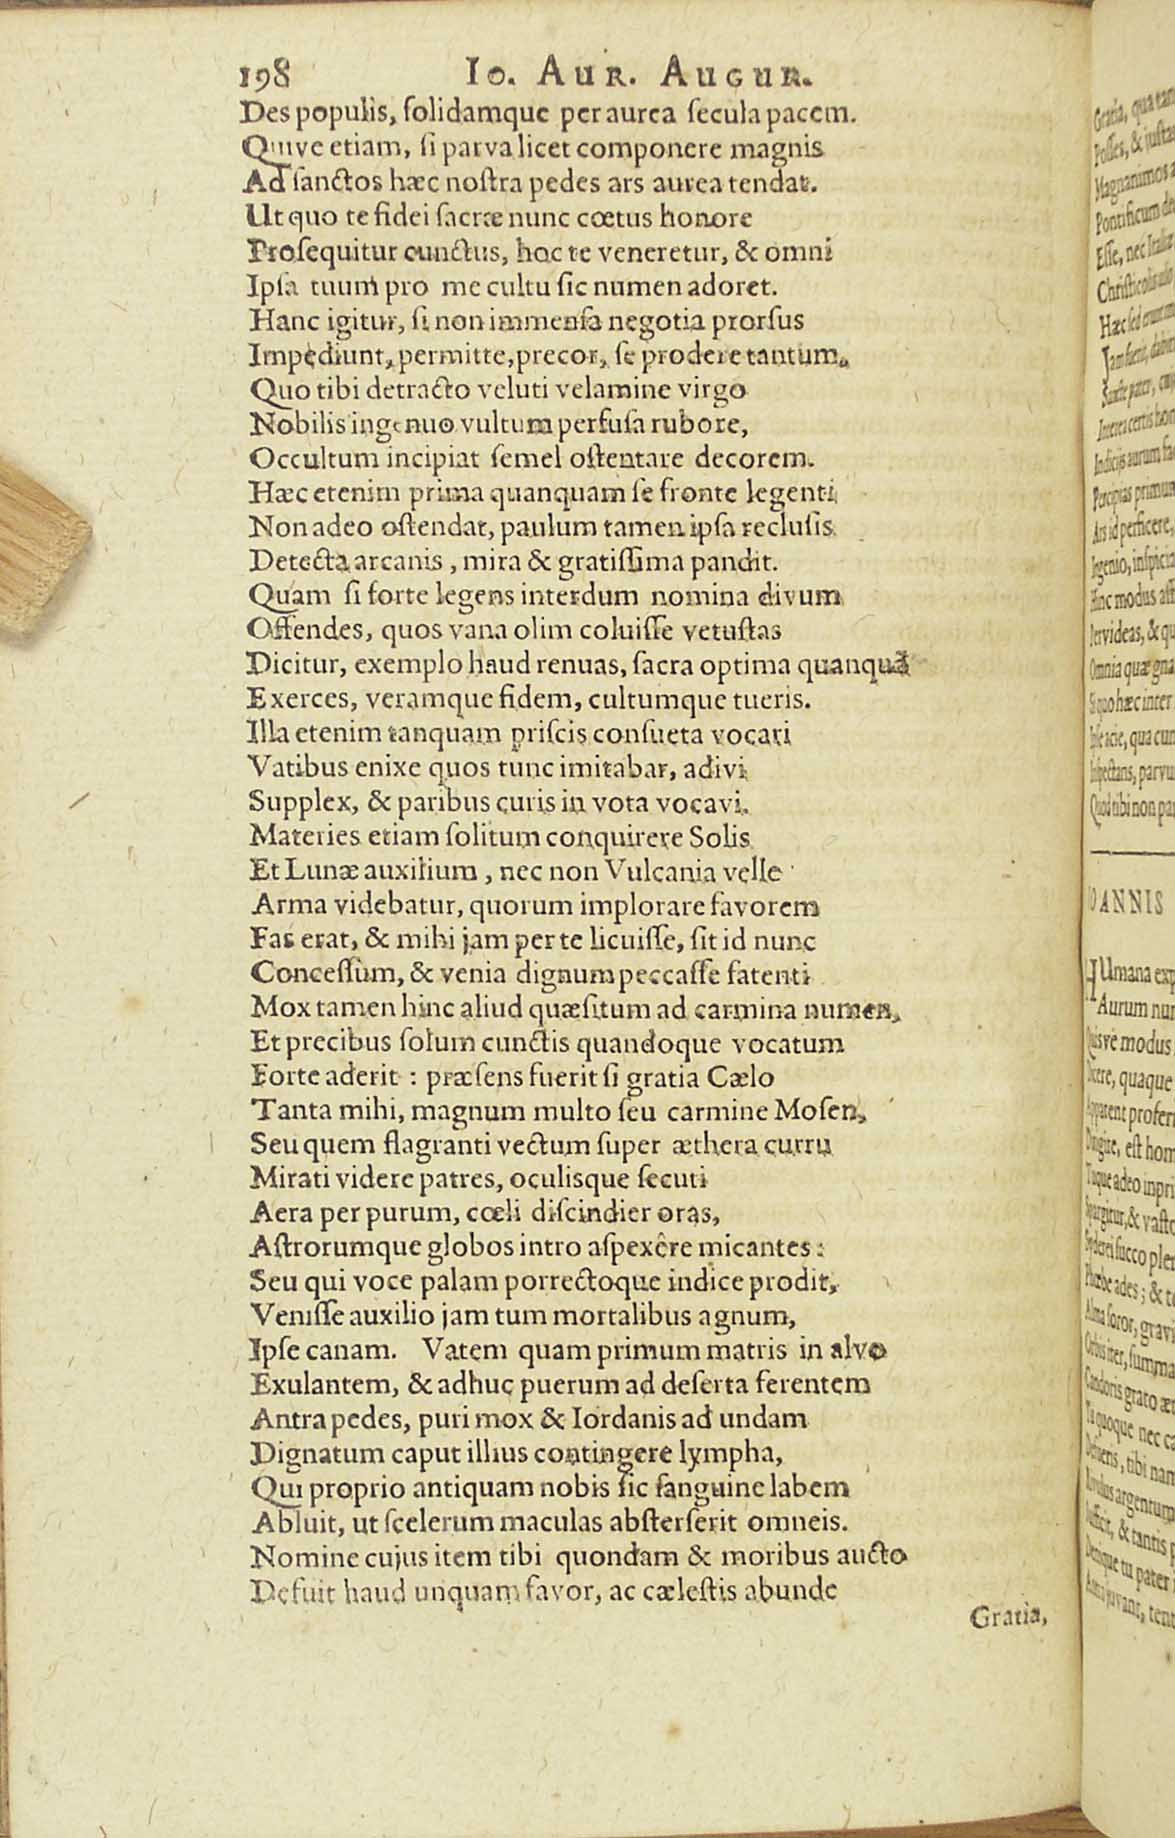 198 Io. Aur. Augur.
Des populis, ſolidamque per aurea ſecula pacem.
Quive etiam, ſi parva licet componere magnis
Ad ſanctos hæc noſtra pedes ars aurea tendat.
Ut quo te fidei ſacræ nunc cœtus honore
Proſequitur cunctus, hoc te veneretur, & omni
Ipſa tuum pro me cultu ſic numen adoret.
Hanc igitur, ſi non immenſa negotia prorſus
Impediunt, permitte, precor, ſe prodere tantum.
Quo tibi detracto veluti velamine virgo
Nobilis ingenuo vultum perfuſa rubore,
Occultum incipiat ſemel oſtentare decorem.
Hæc etenim prima quanquam ſe fronte legenti
Non adeo oſtendat, paulum tamen ipſa recluſis
Detecta arcanis, mira & gratiſſima pandit.
Quam ſi forte legens interdum nomina divum
Offendes, quos vana olim coluiſſe vetuſtas
Dicitur, exemplo haud renuas, ſacra optima quanquã
Exerces, veramque fidem, cultumque tueris.
Illa etenim tanquam priſcis conſueta vocari
Vatibus enixe quos tunc imitabar, adivi
Supplex, & paribus curis in vota vocavi.
Materies etiam ſolitum conquirere Solis
Et Lunæ auxilium, nec non Vulcania velle
Arma videbatur, quorum implorare favorem
Fas erat, & mihi jam per te licuiſſe, ſit id nunc
Conceſſùm, & venia dignum peccaſſe fatenti
Mox tamen hinc aliud quæſitum ad carmina numen,
Et precibus ſolum cunctis quandoque vocatum
Forte aderit : præſens fuerit ſi gratia Cælo
Tanta mihi, magnum multo ſeu carmine Moſen,
Seu quem flagranti vectum ſuper æthera curru
Mirati videre patres, oculisque ſecuti
Aera per purum, cœli diſcindier oras,
Aſtrorumque globos intro aſpexêre micantes:
Seu qui voce palam porrectoque indice prodit,
Veniſſe auxilio jam tum mortalibus agnum,
Ipſe canam. Vatem quam primum matris in alvo
Exulantem, & adhuc puerum ad deſerta ferentem
Antra pedes, puri mox & Iordanis ad undam
Dignatum caput illius contingere lympha,
Qui proprio antiquam nobis ſic ſanguine labem
Abluit, ut ſcelerum maculas abſterſerit omneis.
Nomine cujus item tibi quondam & moribus aucto
Defuit haud unquam favor, ac cæleſtis abunde
Gratia,
Gratia, qua
Poſſes, & juſta
Magnanimos
Pontificum
Eſſe, nec
Hæc ſed
Sancte pater,
Indiciis aurum
Percipias primum
Ars id perficere,
Ingenio,
Hinc modus
Pervideas, &
Omnia quæ
Si quo hæc inter
Ipſe acie, qua
Inſpectans,
Quod tibi non
IOANNIS
HUmana
Aurum
Quisvè modus
Dicere, quaque
Apparent
Dirigite, eſt
Tuque adeo
Spargitur, &
Syderei ſucco
Phœbe ades; &
Alma ſoror,
Orbis iter,
Candoris grato
Tu quoque nec
tibi
argentum
Sufficit, & tantis
Denique tu pater
juvant,